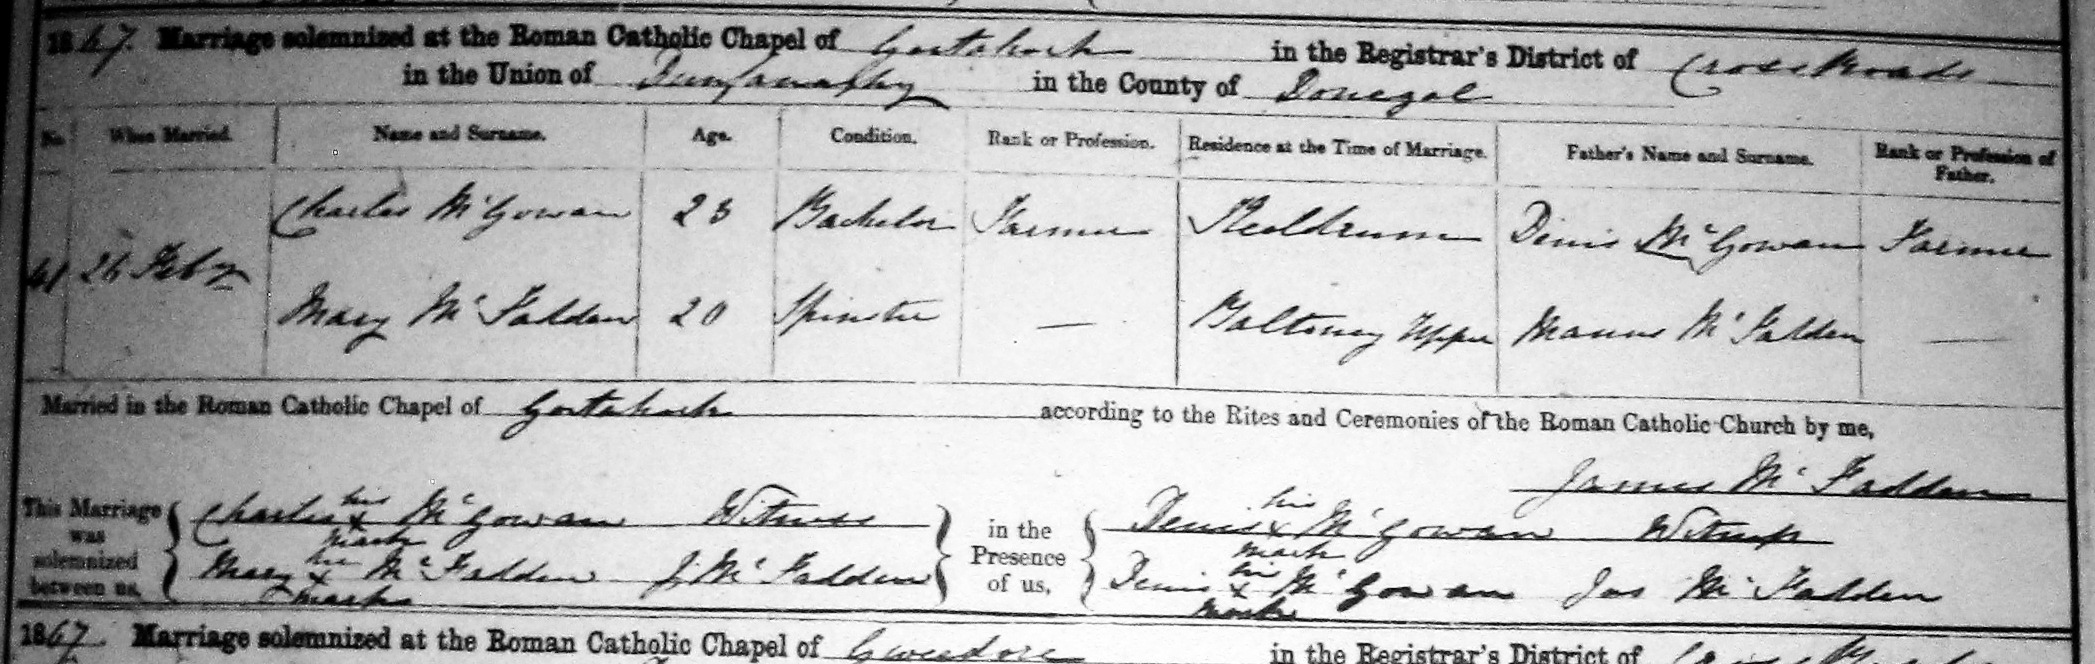 1867. Marriage solemnized at the Roman Catholic Chapel of Gortahork in the Registrar's District of Cross Roads
in the Union of Dunfanaghy in the County of Donegal
No. When Married. Name and Surname. Age. Condition. Rank or Profession. Residence at the Time of Marriage. Father's Name and Surname. Rank or Profession of Father.
Charles McGowan 23 Bachelor Farmer Meeldrum Denis McGowan Farmer
41 26 Feby
Mary McFadden 20 Spinster — Baltoney Upper Manus McFadden —
Married in the Roman Catholic Chapel of Gortahork according to the Rites and Ceremonies of the Roman Catholic Church by me,
James McFadden
This Marriage was solemnized between us, Charles his x mark McGowan Witness in the Presence of us, Denis his x mark McGowan Witness
Mary her x mark McFadden J. McFadden Denis his x mark McGowan Jas McFadden
1867. Marriage solemnized at the Roman Catholic Chapel of Gweedore in the Registrar's District of